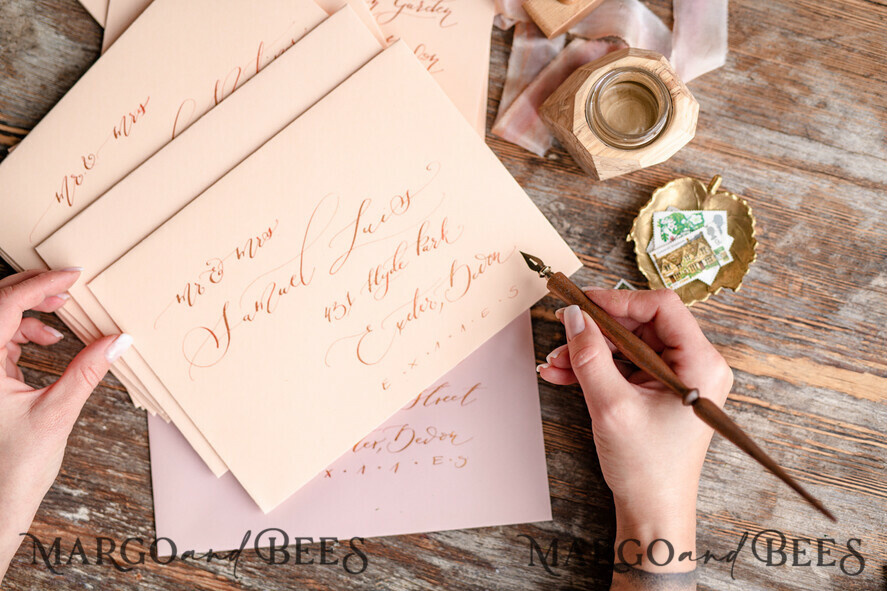 Garden
mr & mrs
mr & mrs
Samuel Lues
431 Hyde Park
Exeter, Devon
E · X · 1 · 1 · E · S
Street
Exeter, Devon
X · 1 · 1 · E S
MARGO and BEES
MARGO and BEES